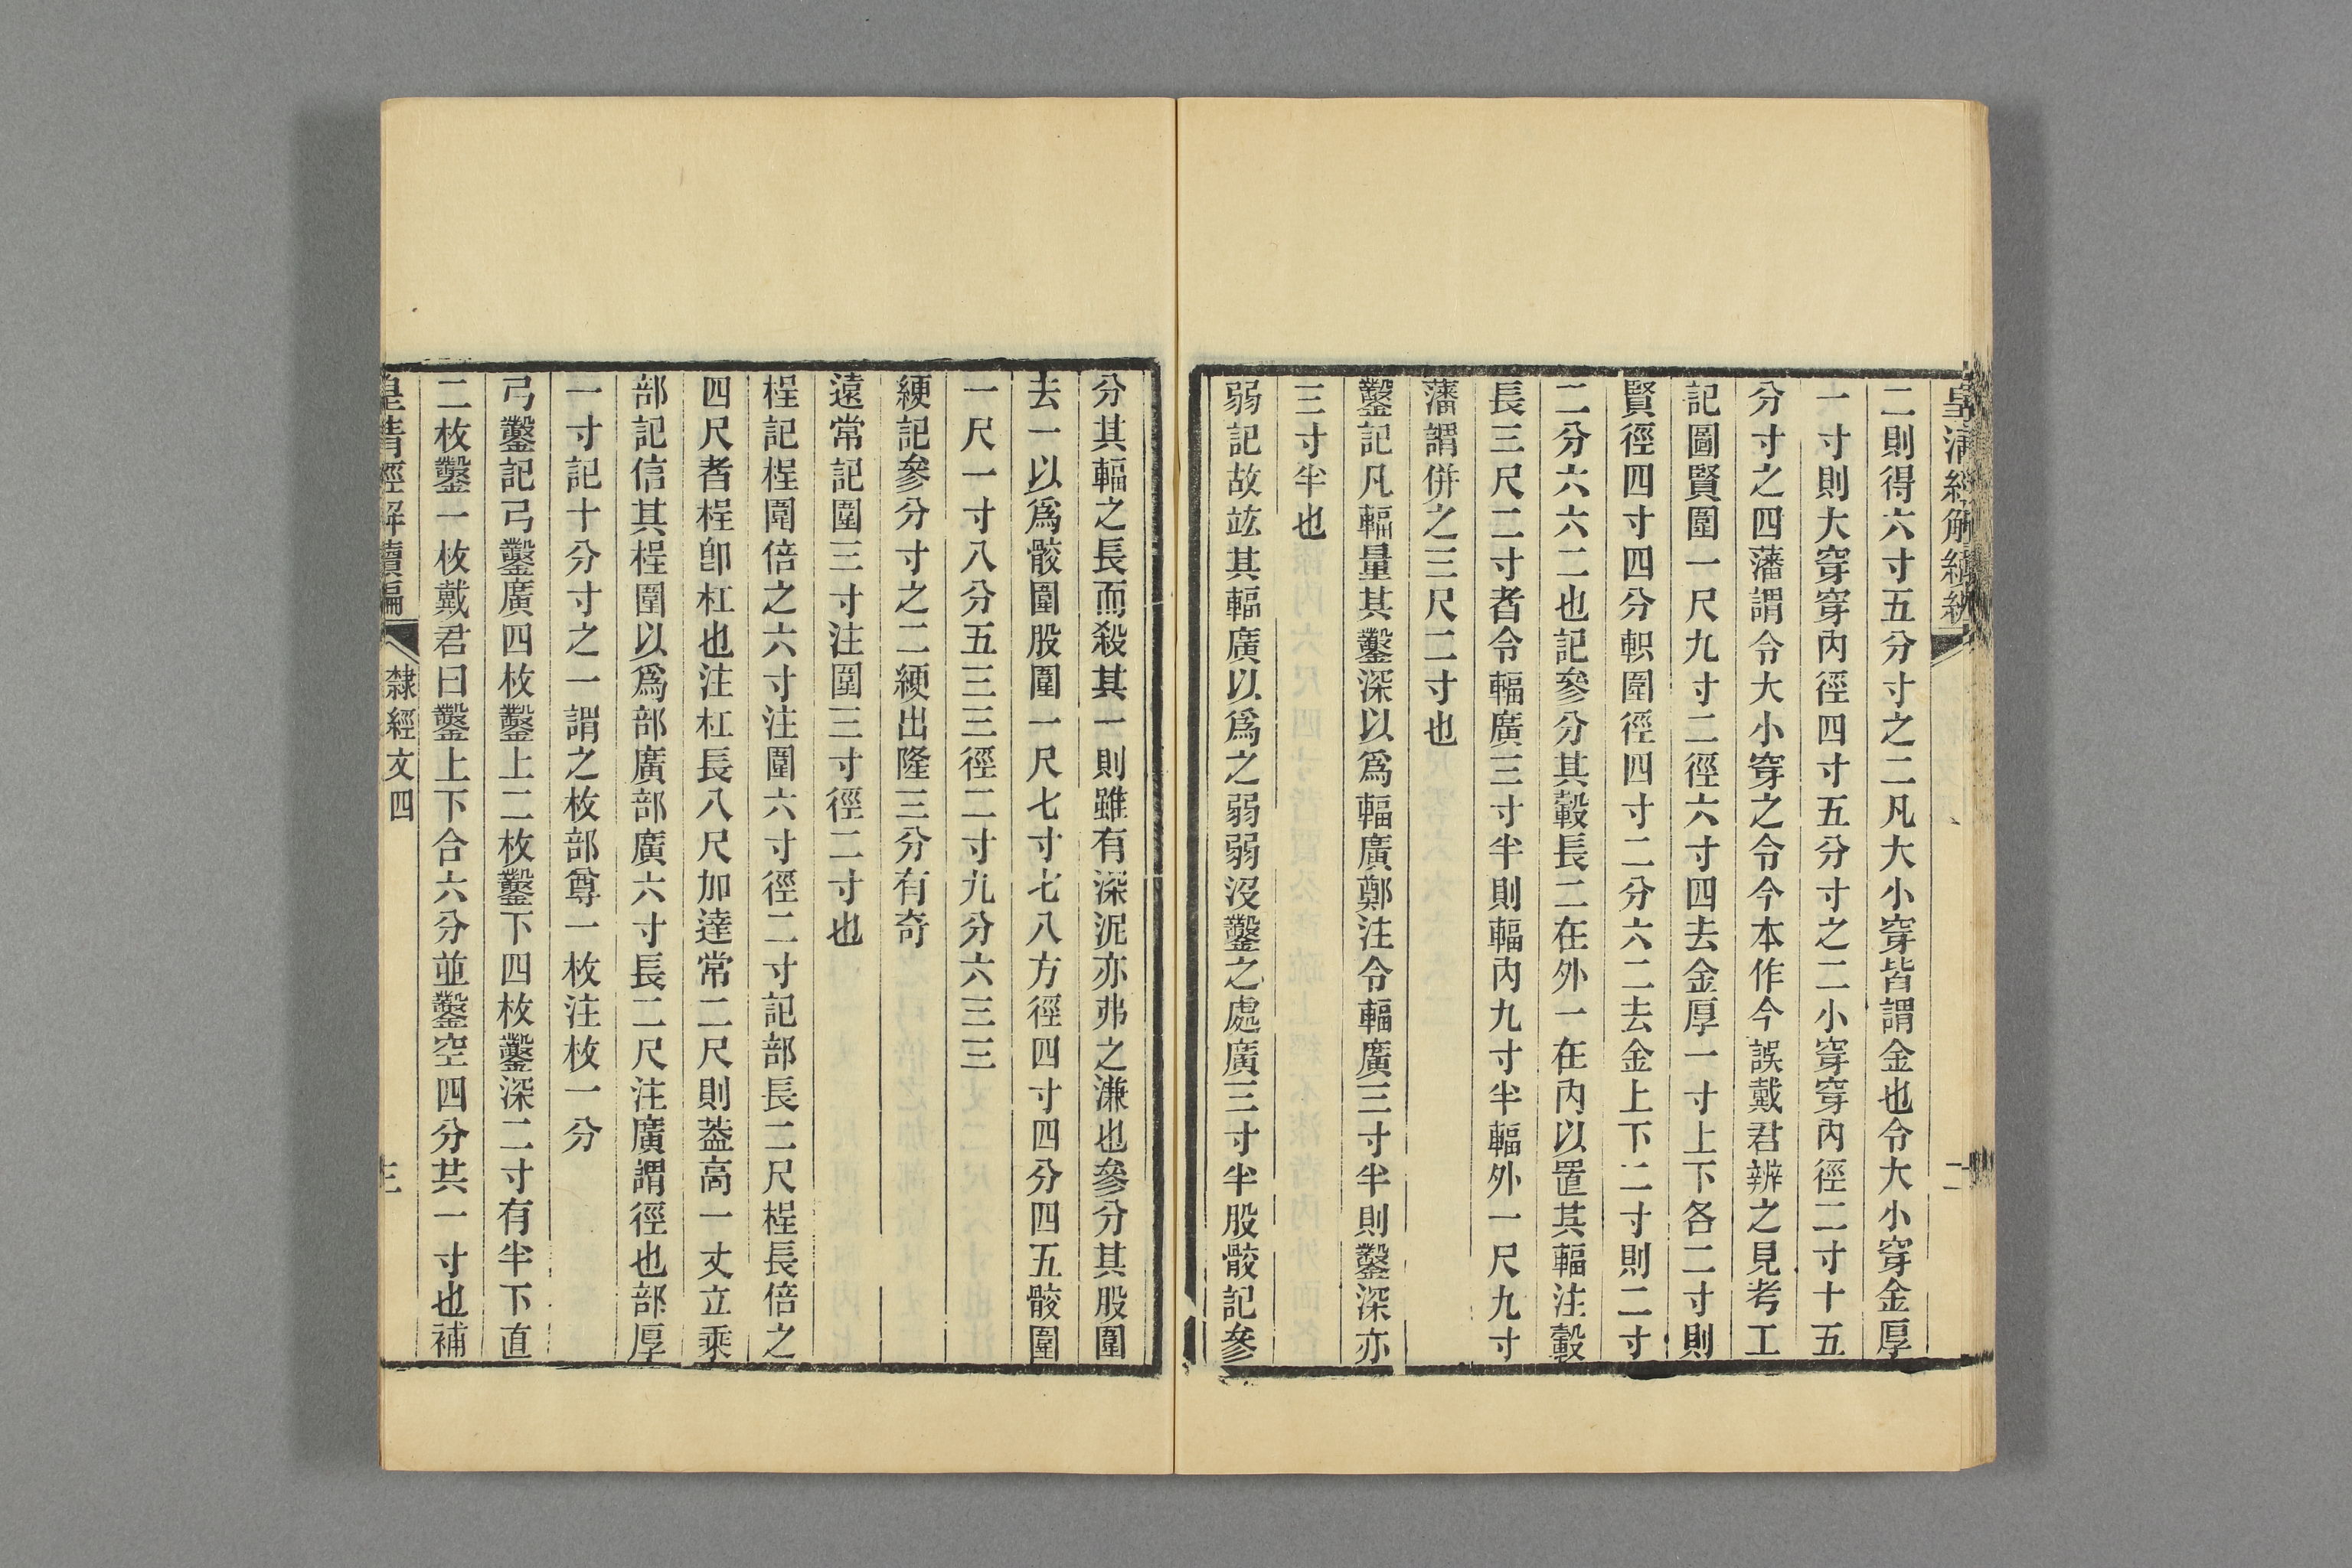 皇清經解續編
二
二則得六寸五分寸之二凡大小穿皆謂金也令大小穿金厚
一寸則大穿穿內徑四寸五分寸之二小穿穿內徑二寸十五
分寸之四藩謂令大小穿之令今本作今誤戴君辨之見考工
記圖賢圍一尺九寸二徑六寸四去金厚一寸上下各二寸則
賢徑四寸四分軹圍徑四寸二分六二去金上下二寸則二寸
二分六六二也記參分其轂長二在外一在內以置其輻注轂
長三尺二寸者令輻廣三寸半則輻內九寸半輻外一尺九寸
藩謂併之三尺二寸也
鑿記凡輻量其鑿深以爲輻廣鄭注令輻廣三寸半則鑿深亦
三寸半也
弱記故竑其輻廣以爲之弱弱沒鑿之處廣三寸半股骹記參
分其輻之長而殺其一則雖有深泥亦弗之溓也參分其股圍
去一以爲骹圍股圍一尺七寸七八方徑四寸四分四五骹圍
一尺一寸八分五三三徑二寸九分六三三
綆記參分寸之二綆出隆三分有奇
遠常記圍三寸注圍三寸徑二寸也
桯記桯圍倍之六寸注圍六寸徑二寸記部長二尺桯長倍之
四尺者桯卽杠也注杠長八尺加達常二尺則葢高一丈立乘
部記信其桯圍以爲部廣部廣六寸長二尺注廣謂徑也部厚
一寸記十分寸之一謂之枚部尊一枚注枚一分
弓鑿記弓鑿廣四枚鑿上二枚鑿下四枚鑿深二寸有半下直
二枚鑿一枚戴君曰鑿上下合六分並鑿空四分共一寸也補
皇清經解續編
隸經文四
三